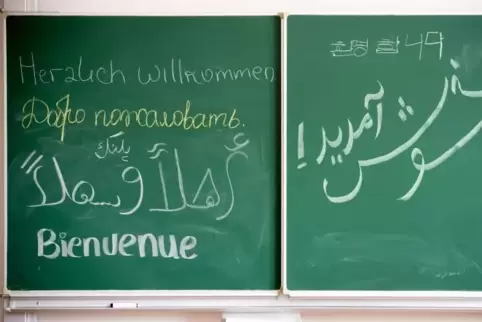 Herzlich willkommen
Добро пожаловать.
أهلاً وسهلاً
Bienvenue
آمدید!